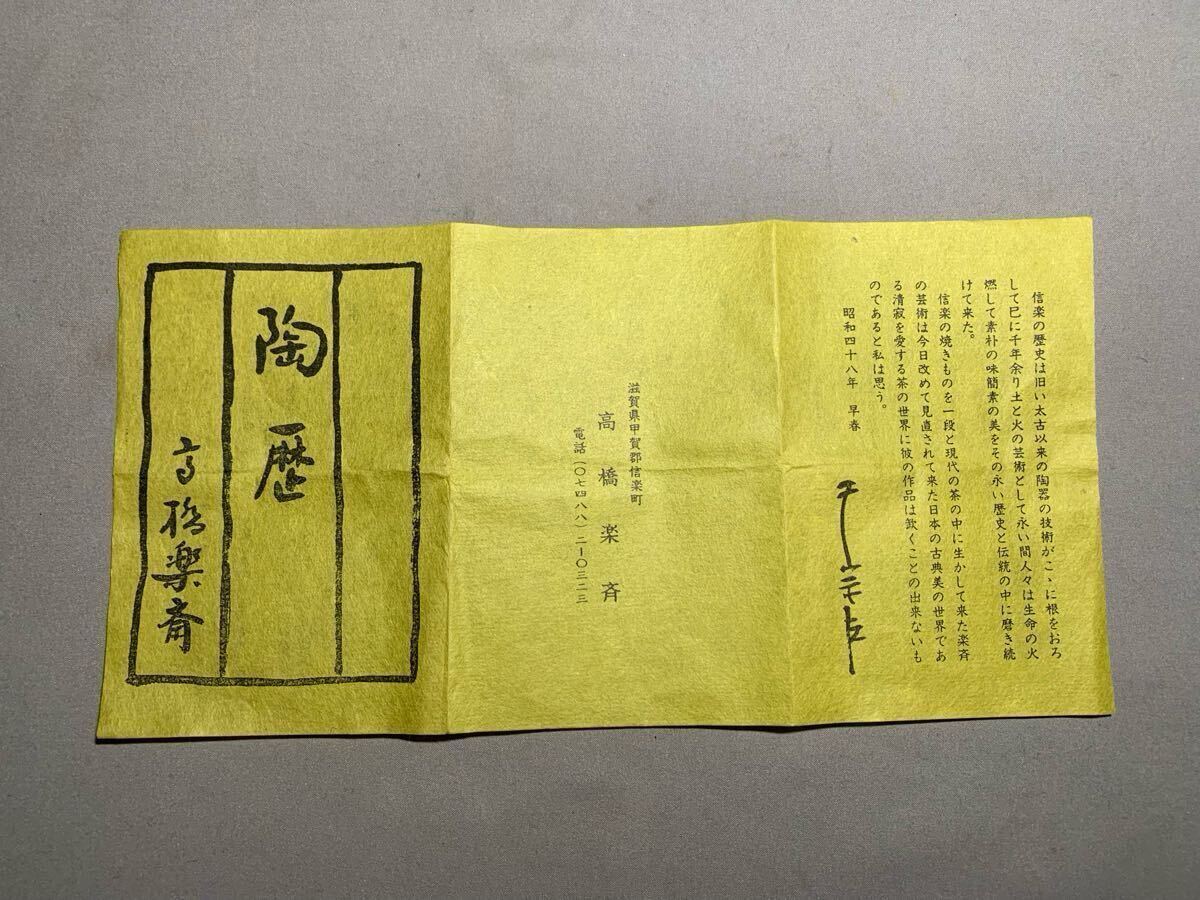 信楽の歴史は旧い太古以来の陶器の技術がこゝに根をおろ
して巳に千年余り土と火の芸術として永い間人々は生命の火
燃して素朴の味簡素の美をその永い歴史と伝統の中に磨き続
けて来た。
信楽の焼きものを一段と現代の茶の中に生かして来た楽斉
の芸術は今日改めて見直されて来た日本の古典美の世界であ
る清寂を愛する茶の世界に彼の作品は欽くことの出来ないも
のであると私は思う。
昭和四十八年 早春
滋賀県甲賀郡信楽町
高橋楽斉
電話(〇七四八八)二ー〇三二三
陶歴
高橋楽斎